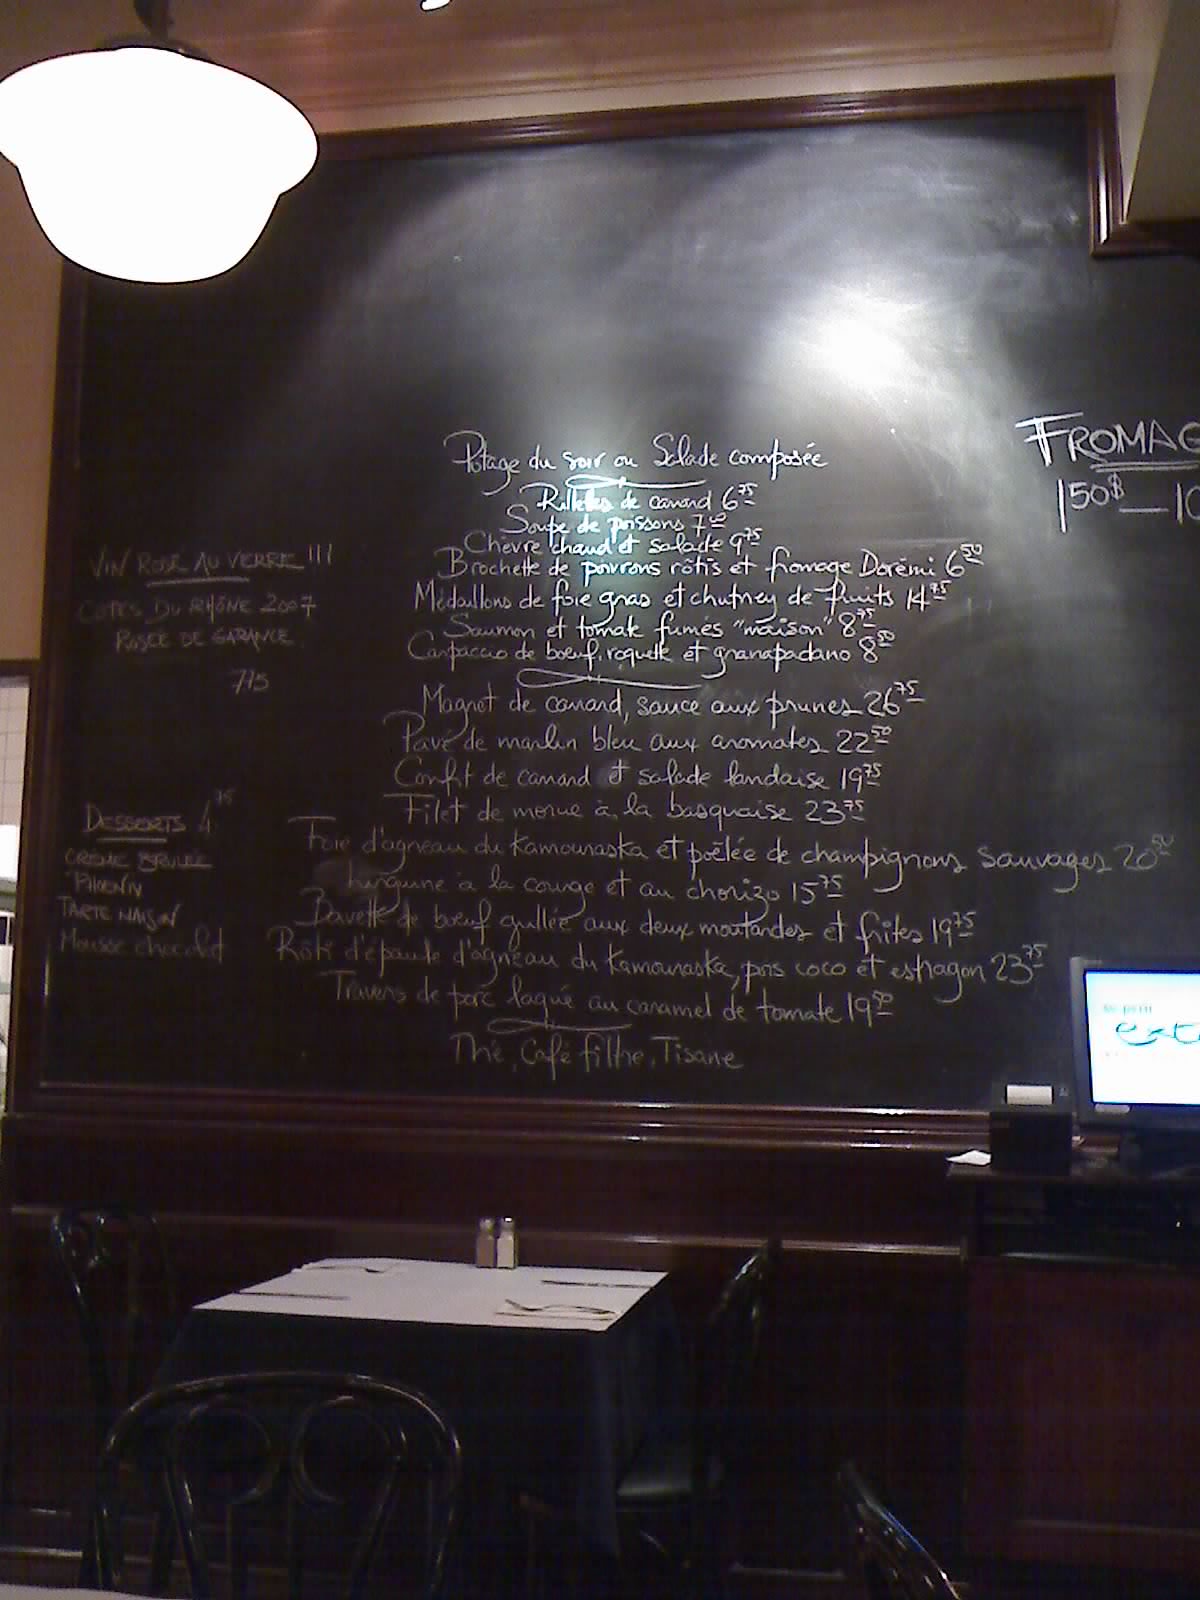 Potage du soir ou Salade composée
Rillettes de canard 6 75
Soupe de poissons 7 50
Chèvre chaud et salade 9 75
Brochette de poivrons rôtis et fromage Dorémi 6 50
Médaillons de foie gras et chutney de fruits 14 75
Saumon et tomate fumés "maison" 8 75
Carpaccio de boeuf, roquette et granapadano 8 50
Magret de canard, sauce aux prunes 26 75
Pavé de marlin bleu aux aromates 22 50
Confit de canard et salade landaise 19 75
Filet de morue à la basquaise 23 75
Foie d'agneau du Kamouraska et poêlée de champignons sauvages 20 50
à la courge et au chorizo 15 75
Bavette de boeuf grillée aux deux moutardes et frites 19 75
Rôti d'épaule d'agneau du Kamouraska, pois coco et estragon 23 75
Travers de porc laqué au caramel de tomate 19 50
Thé, Café filtre, Tisane
VIN ROSÉ AU VERRE !!!
COTES DU RHÔNE 2007
ROSÉE DE GARANCE
DESSERTS 4 75
CRÈME BRULÉE
TARTE MAISON
Mousse chocolat
FROMAG
1 50$ — 10